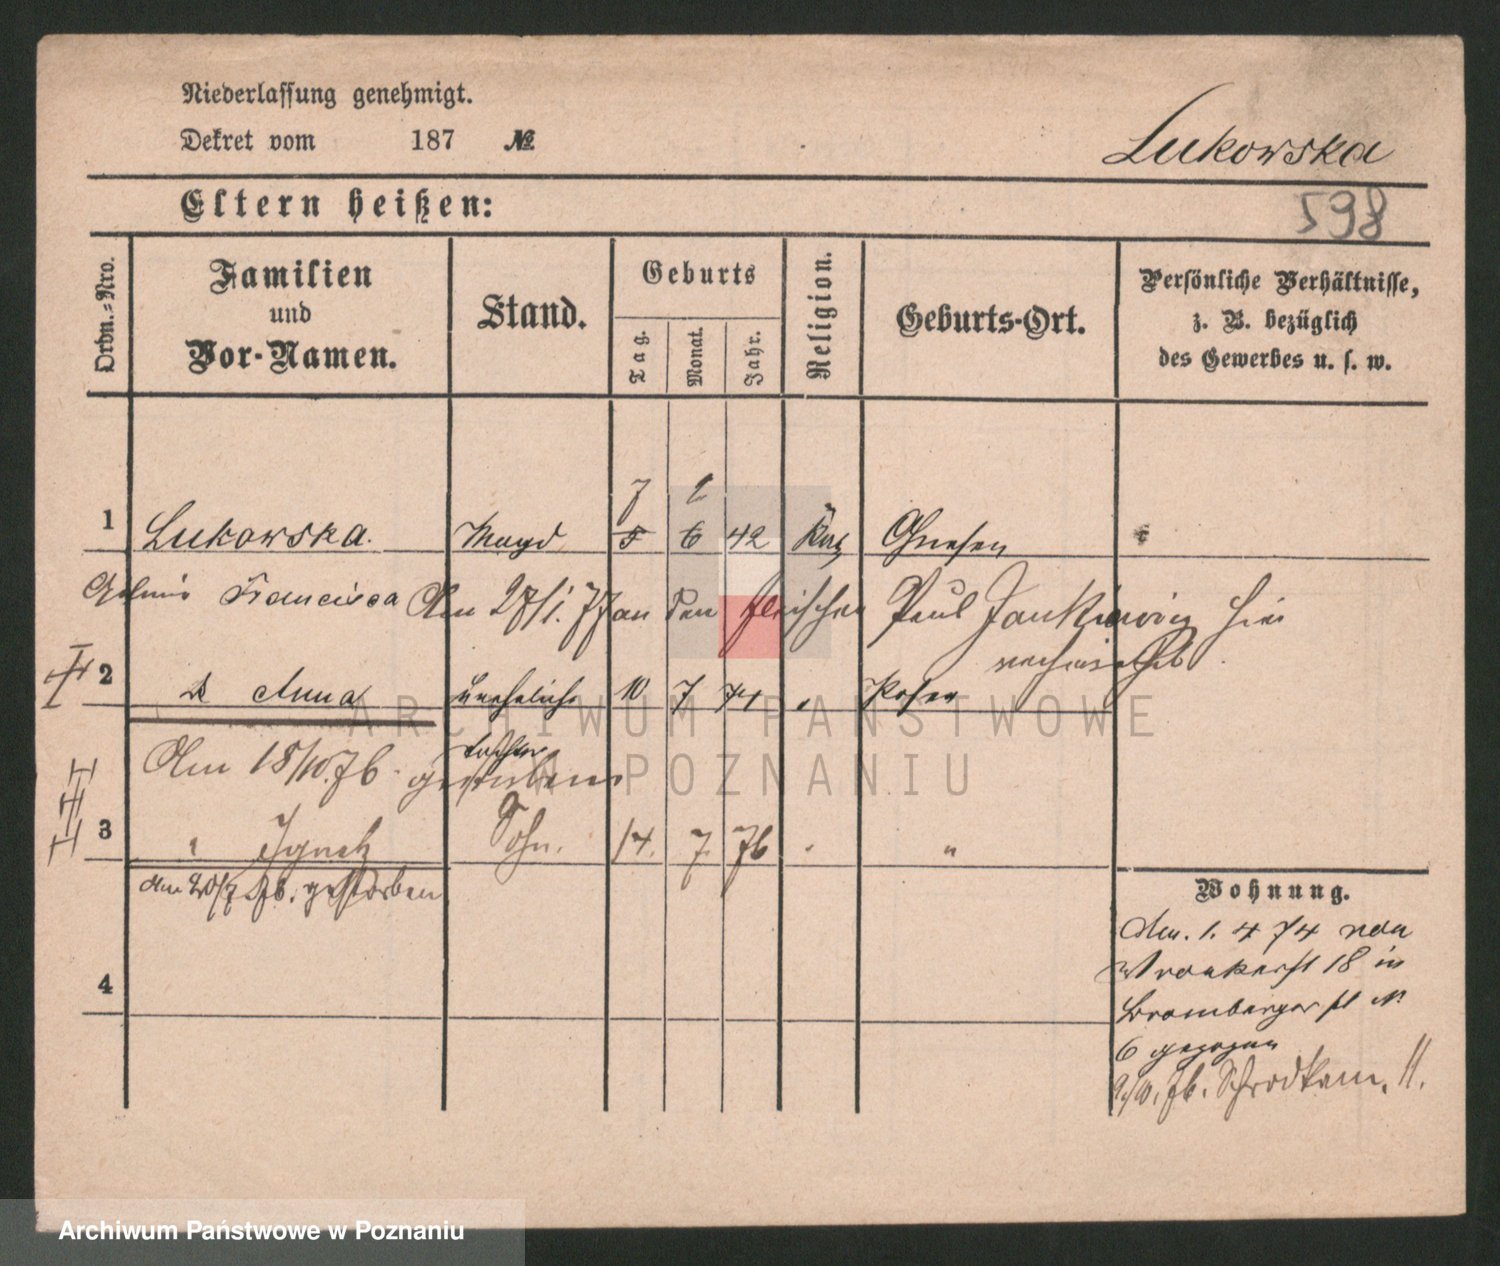 Niederlassung genehmigt.
Dekret vom 187 №
Lukowska
Eltern heißen:
598
Ordn.-Nro.
Familien
und
Vor-Namen.
Stand.
Geburts
Tag.
Monat.
Jahr.
Religion.
Geburts-Ort.
Persönliche Verhältnisse,
z. B. bezüglich
des Gewerbes u. s. w.
7
1 Lukowska. Magd 5 6 42 Kat Gnesen
Francisca Am 27/1. 77 an den Fleischer Paul Jankiewicz hier
verheirathet.
2 Anna uneheliche 10 7 74 Posen
Tochter
Am 18/10. 76. gestorben
3 " Ignatz Sohn. 14. 7. 76 "
am 20/7 76. gestorben
4
Wohnung.
Am. 1. 4 74 von
Wronkerst 18 in
Brombergerst N.
6 gezogen
9/10. 76. Schrodkam. 11.
ARCHIWUM PAŃSTWOWE
W POZNANIU
Archiwum Państwowe w Poznaniu